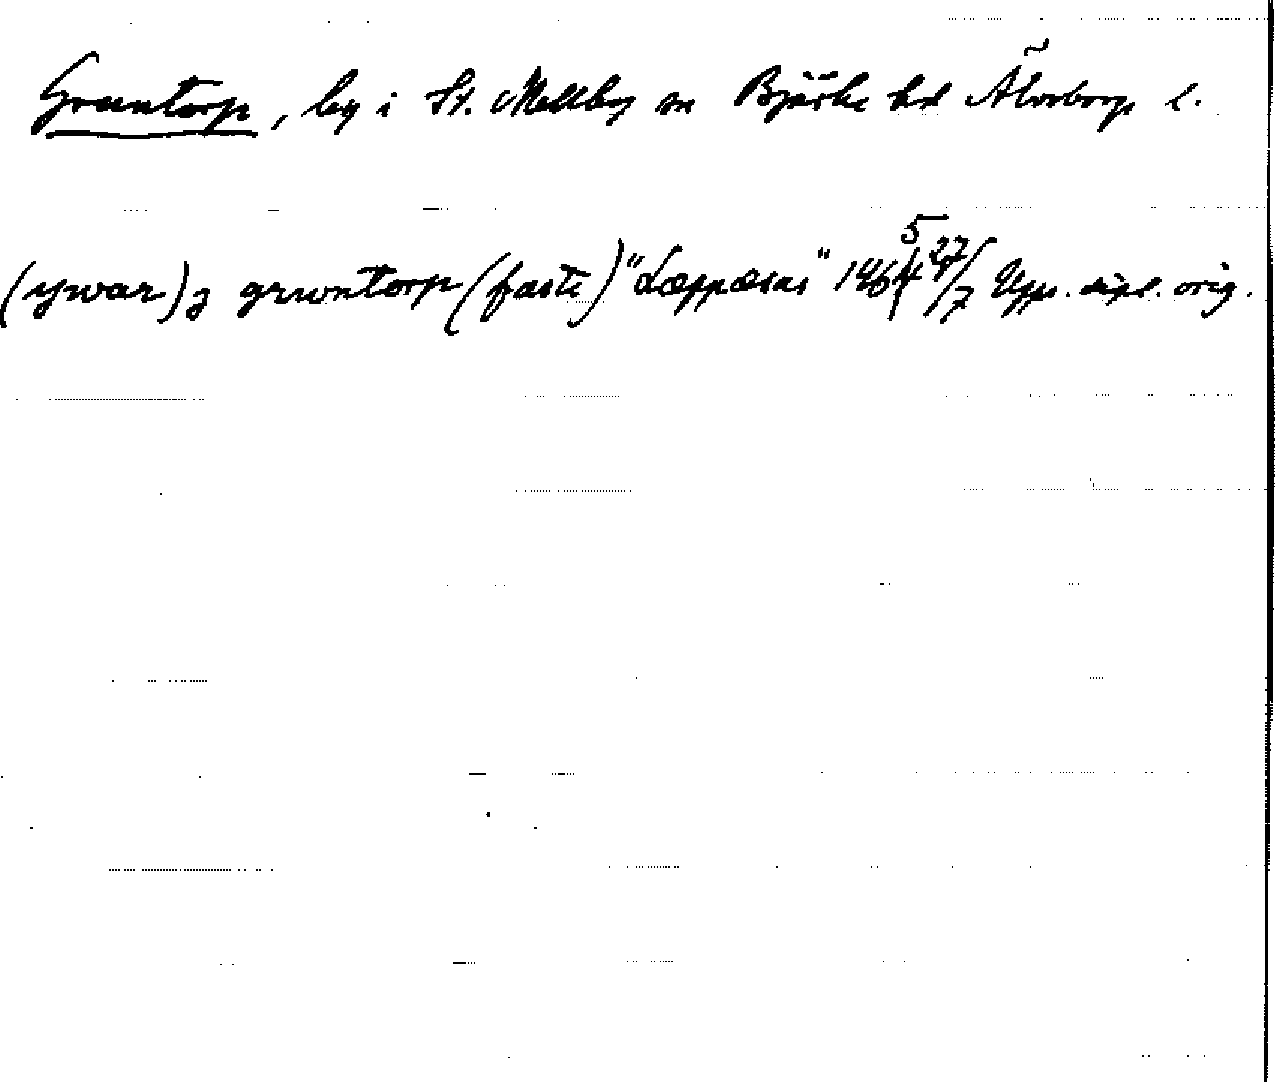 Gruntorp, by i St. Mellby sn Bjärke hd Älvsborgs l.
(ywar) j gruntorp (faste) "Læppæsas" 1465 27/7 Upps. dipl. orig.